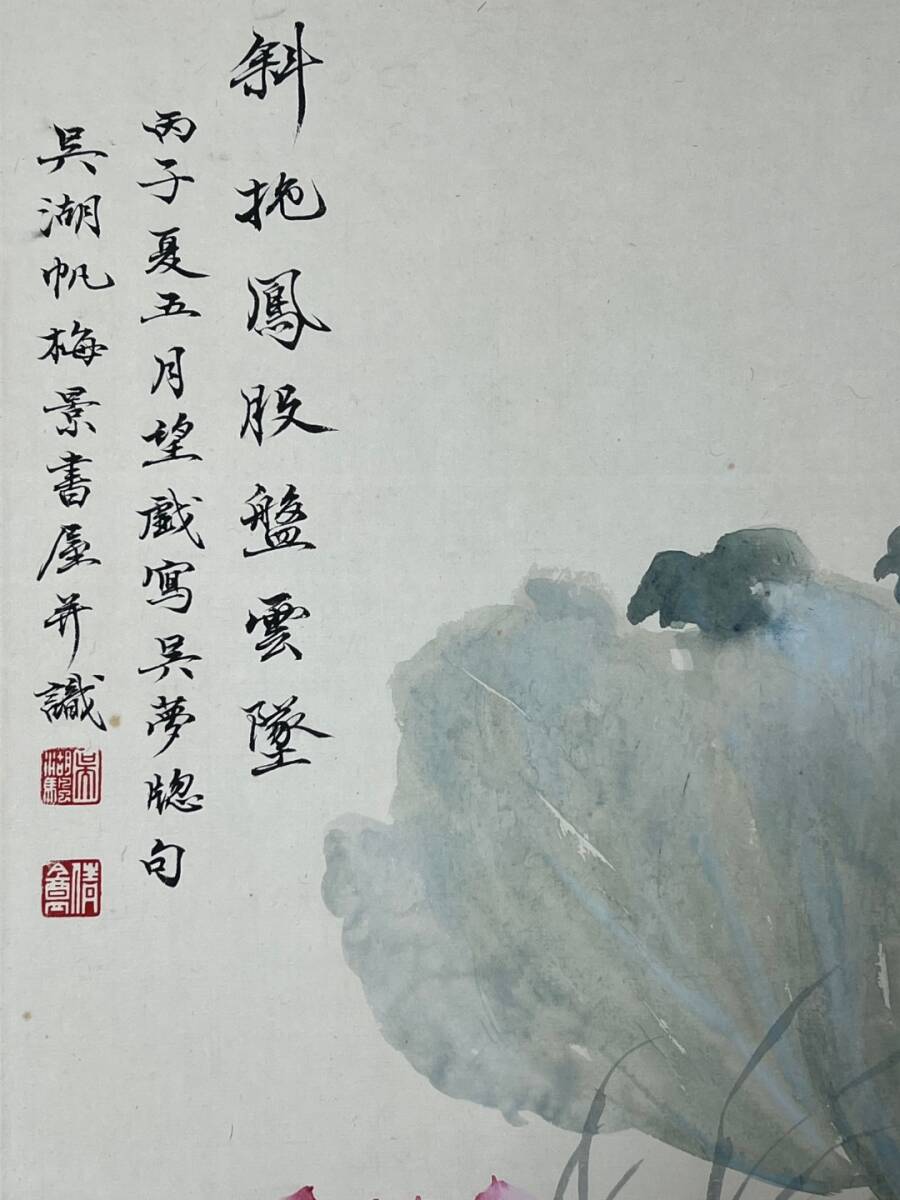 斜拖鳳股盤雲墜
丙子夏五月望戲寫吳夢牕句
吳湖帆梅景書屋并識
吳湖颿
倩盦